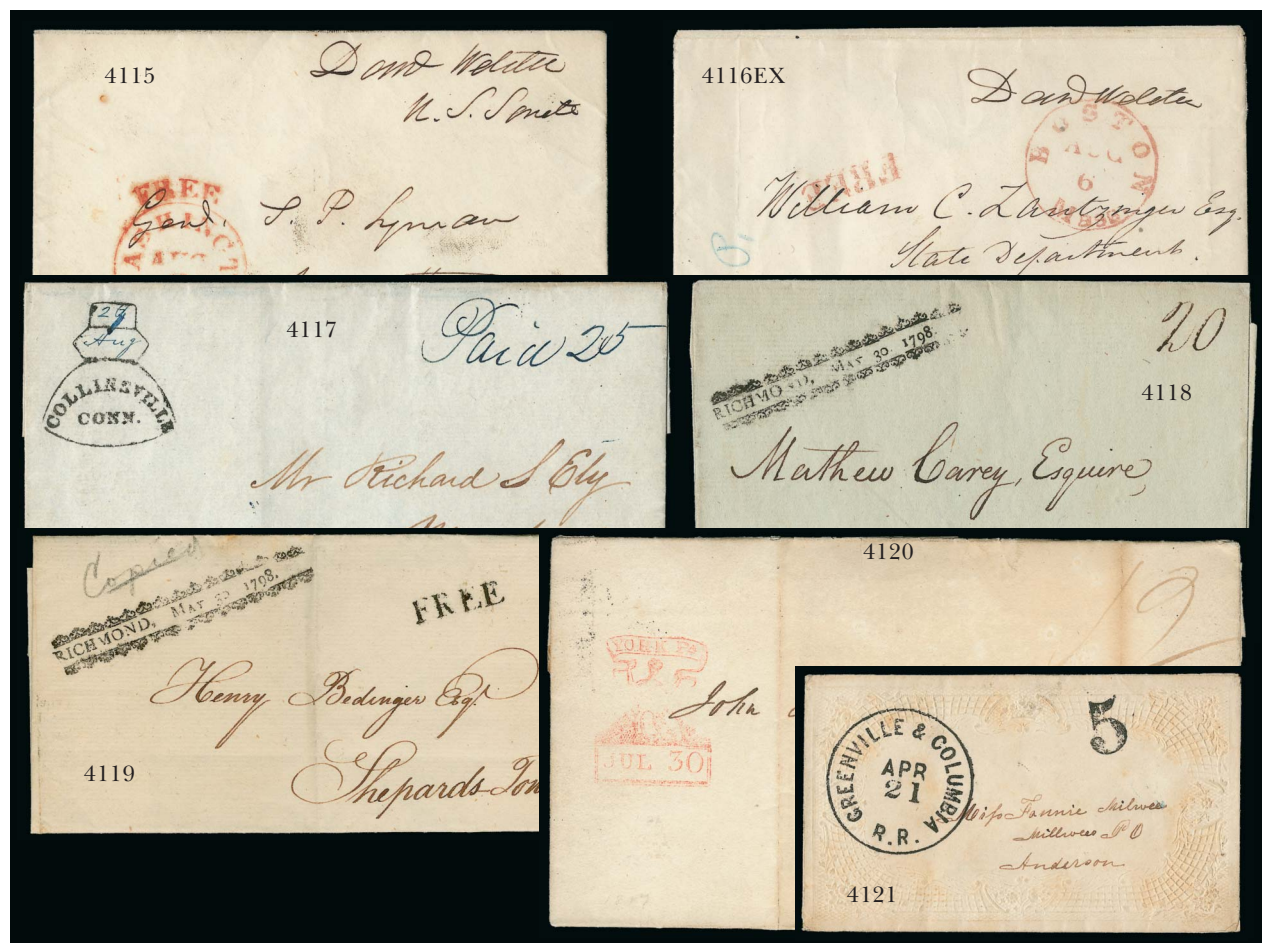 4115
Danl Webster
U.S. Senate
FREE
Genl. S. P. Lyman
AUG
4116EX
Danl Webster
BOSTON
AUG
6
MASS
FREE
William C. Zantzinger Esq.
State Department.
4117
Paid 25
Aug
COLLINSVILLE
CONN.
Mr Richard S Ely
20
4118
RICHMOND, MAY 30, 1798.
Mathew Carey, Esquire,
Copied
RICHMOND, MAY 30 1798.
FREE
Henry Bedinger Esqr.
4119
Shepards Tow
4120
YORK Pa
JUL 30
John
GREENVILLE & COLUMBIA
APR
21
R.R.
5
Miss Fannie Milwee
Millwees PO
Anderson
4121